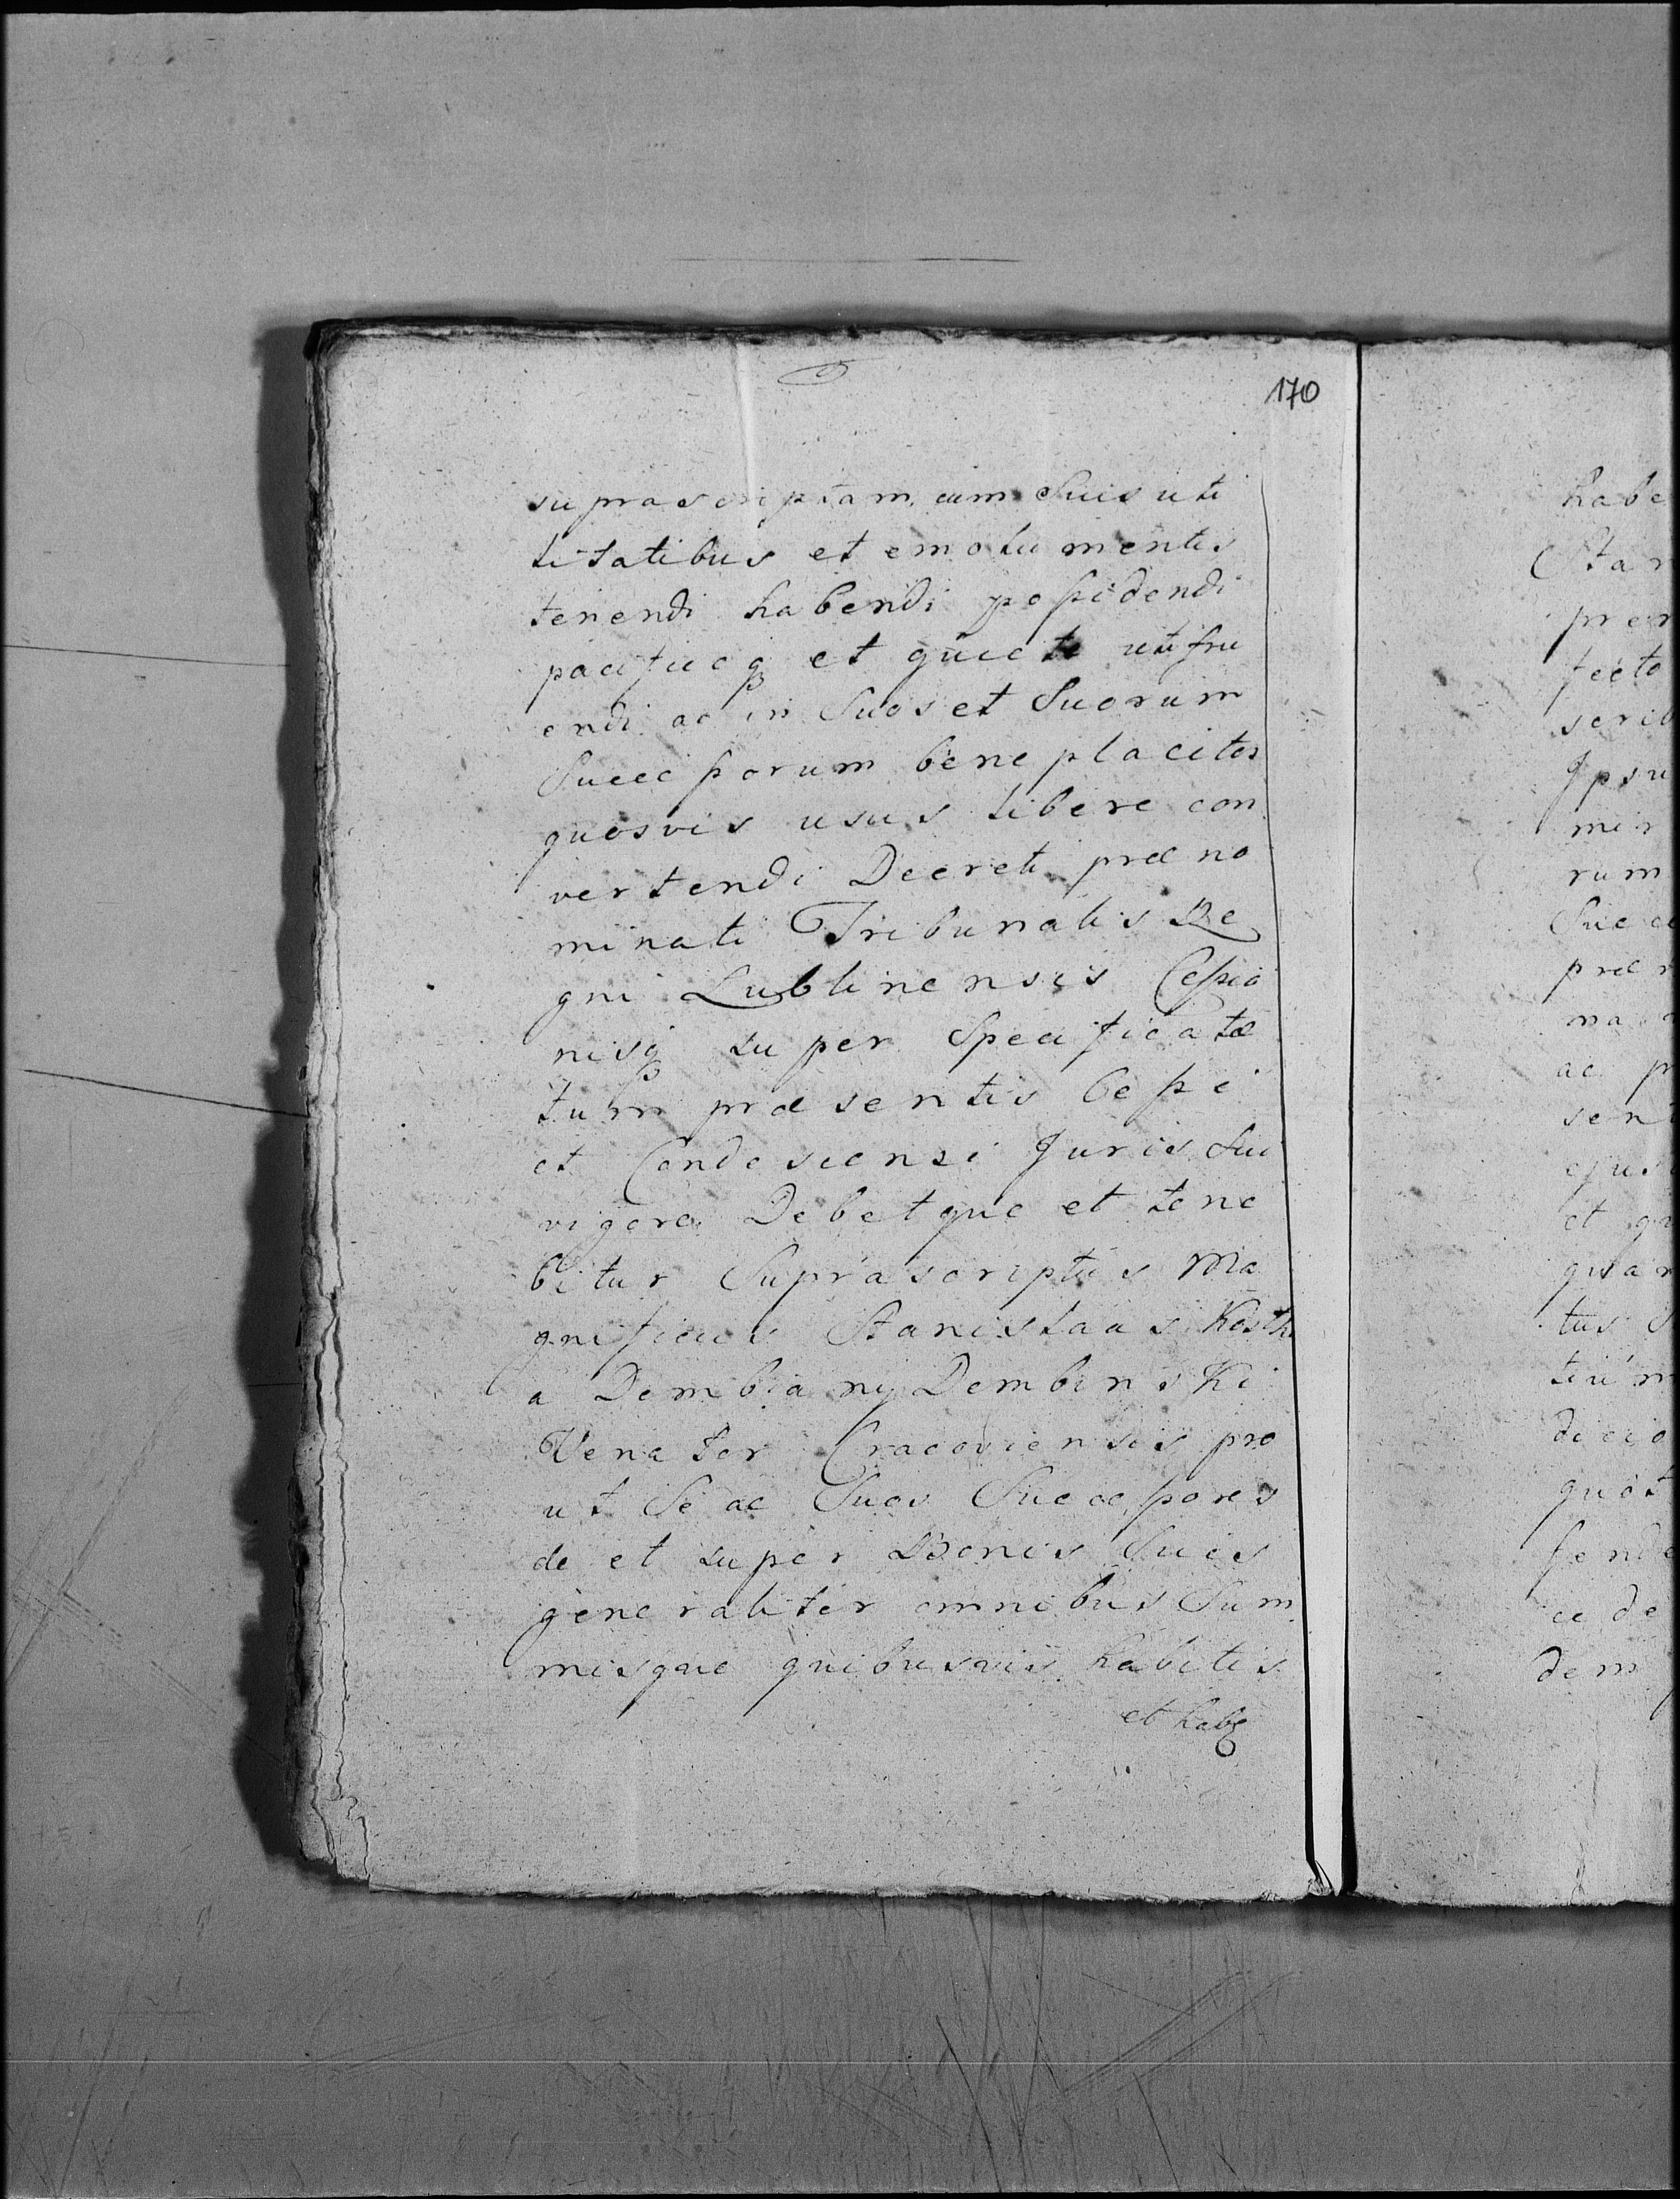 170
suprascriptam cum Suis uti
litatibus et emolumentis
tenendi habendi possidendi
pacificeq et quiete utifru
endi ac in Suos et Suorum
Successorum bene placitos
quosvis usus libere con
vertendi Decreti præ no
minati Tribunalis Re
gni Lublinensis Cessio
nisq super Specificatæ
tum præsentis Cessi
et Condescensi Juris Sui
vigore Debetque et tene
bitur Suprascriptus Ma
gnificus Stanislaus Kostka
a Dembiany Dembinski
Venator Cracoviensis pro
ut Se ac Suos Successores
de et super Bonis Suis
generaliter omnibus Sum
misque quibusvis habitis
et habe
habe
Star
fecto
scrib
Ipsu
mir
rum
Succe
præ
ma
ac pr
sent
ejus
et qu
quar
tus S
dicio
quot
fende
ce de
dem